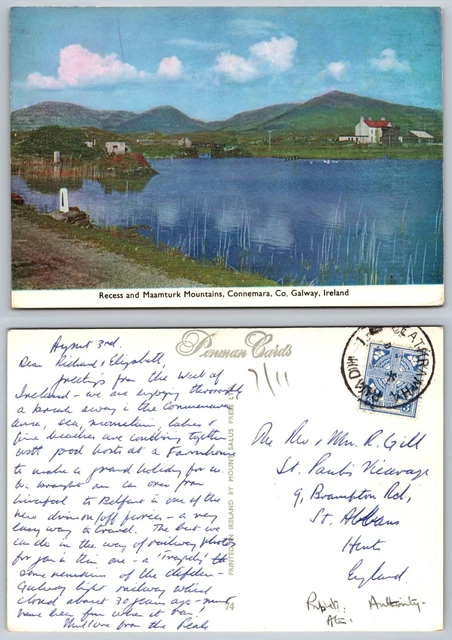 Recess and Maamturk Mountains, Connemara, Co. Galway, Ireland
Penman Cards
7/11
August 3rd.
Dear Richard & Elizabeth,
Greetings from the west of
Ireland - we are enjoying thoroughly
a break away in the Connemara
area, sea, mountains, lakes &
fine beaches are combining together
with good hosts at a Farmhouse
to make a grand holiday for us
We brought our car over from
Liverpool to Belfast in one of the
new drive on/off ferries - a very
easy way to travel. The best we
can do in the way of railway photos
for you is this one - a 'Tragedy'
some remains of the Clifden -
Galway light railway which
closed about 30 years ago - must
have been fun when it ran!
love from the Peals
PRINTED IN IRELAND BY MOUNT SALUS PRESS LTD.
74
The Rev. & Mrs. R. Gill
St. Paul's Vicarage
9, Brampton Rd,
St. Albans
Herts
England
Authority